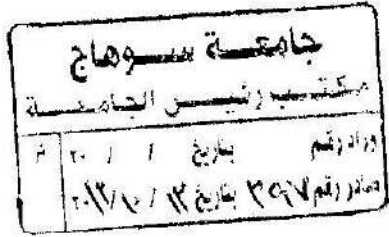 جامعة سوهاج
مكتب رئيس الجامعة
وارد رقم بتاريخ / / ٢٠ م
صادر رقم بتاريخ